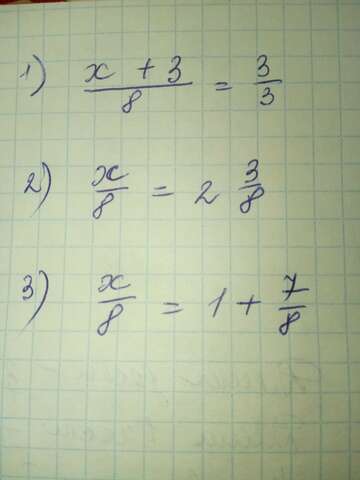 1) (x + 3)/8 = 3/3
2) x/8 = 2 3/8
3) x/8 = 1 + 7/8